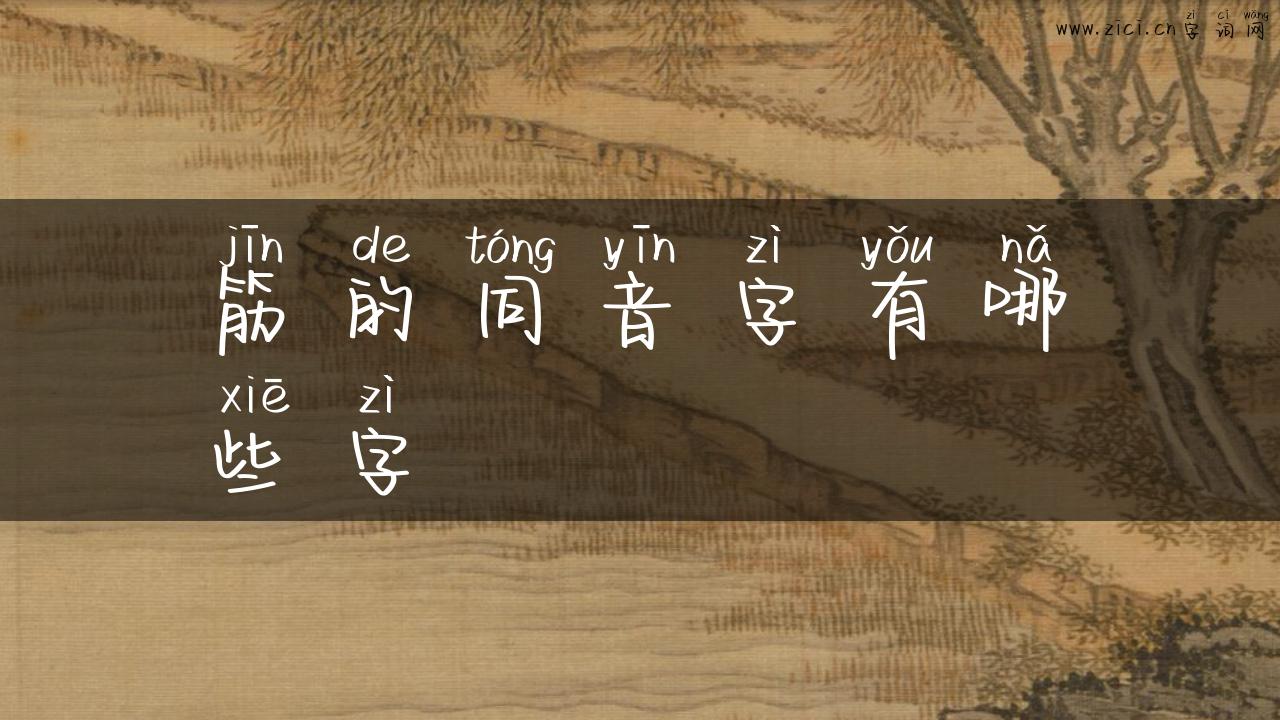 zì cí wǎng
www.zici.cn字词网
jīn de tóng yīn zì yǒu nǎ
筋的同音字有哪
xiē zì
些字